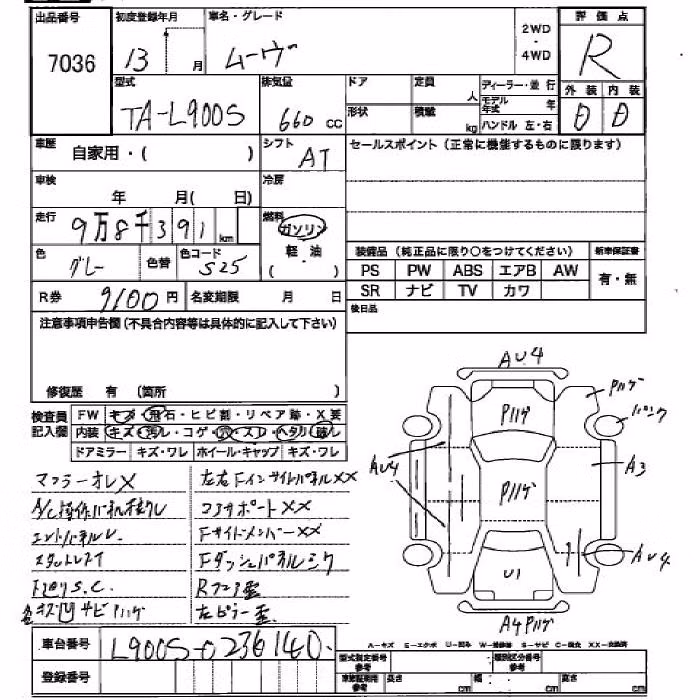 出品番号 初度登録年月 車名・グレード 2WD ・ 4WD 評価点
7036 13 月 ムーヴ R
型式 排気量 ドア 定員 人 ディーラー・並行 外装 内装
TA-L900S 660 CC 形状 積載 kg モデル年式 年 D D
ハンドル 左・右
車歴 自家用・( ) シフト AT セールスポイント(正常に機能するものに限ります)
車検 年 月( 日) 冷房
走行 9万8千391 km 燃料 ガソリン
軽・油
( )
色 グレー 色替 色コード S25
装備品(純正品に限り○をつけてください) 新車保証書
PS PW ABS エアB AW 有・無
SR ナビ TV カワ
R券 9100円 名変期限 月 日 後日品
注意事項申告欄(不具合内容等は具体的に記入して下さい)
修復歴 有 (箇所 )
検査員記入欄 FW キズ・飛石・ヒビ割・リペア跡・X要
内装 キズ・汚レ・コゲ・穴・スレ・ヘタリ・破レ
ドアミラー キズ・ワレ ホイール・キャップ キズ・ワレ
マフラーオレX 左右FインサイドパネルXX
A/C操作パネル コアサポートXX
FサイドメンバーXX
Fダッシュパネル
S.C. Rフロア歪
キズ凹サビPハゲ 左ピラー歪
AU4
Pハゲ
Pハゲ
パンク
AU4
A3
Pハゲ
AU4
U1
A4Pハゲ
車台番号 L900S-0236140.
登録番号
A-キズ E-エクボ U-凹み W-補修跡 S-サビ C-腐食 XX-交換済
型式指定番号 参考 類別区分番号 参考
長さ cm 幅 cm 高さ cm